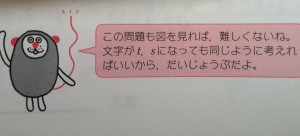 この問題も図を見れば，難しくないね。
文字がt，sになっても同じように考えれ
ばいいから，だいじょうぶだよ。